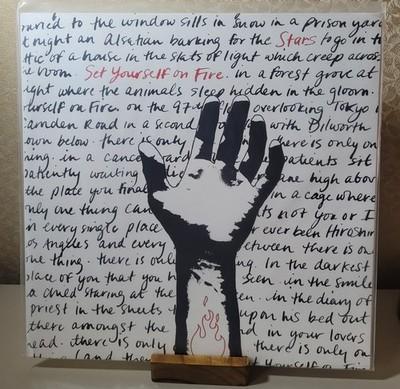 to the window sills in snow in a prison yard
night an Alsatian barking for the Stars to go in
of a house in the slats of light which creep across
room. Set Yourself on Fire. in a forest grove at
where the animals sleep hidden in the gloom.
on Fire. on the overlooking Tokyo
Camden Road in a second with Bilworth
own below. there is only there is only on
in a cancer patients sit
patiently waiting high above
the plate you final in a cage where
only one thing can its not you or I
in every single place ever been Hiroshim
os Angeles and every between there is on
one thing. there is only In the darkest
place of that you h seen. in the smile
a child staring at the in the diary of
priest in the sheets upon his bed out
there amongst the and in your lovers
ead. there is only there is only on